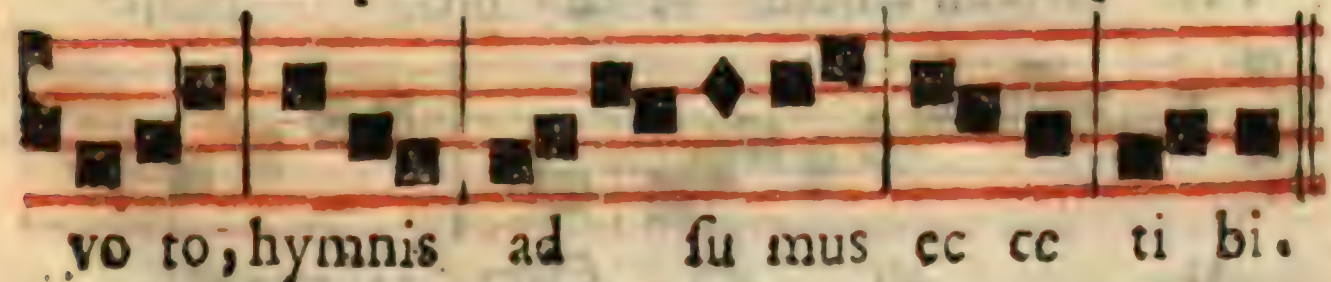 vo to, hymnis ad ſu mus ec ce ti bi.